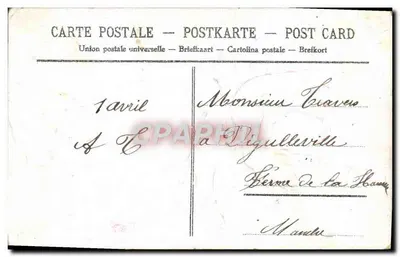 CARTE POSTALE – POSTKARTE – POST CARD
Union postale universelle – Briefkaart – Cartolina postale – Brefkort
1 avril
A T
Monsieur Travers
à Digulleville
Ferme de la
Manche
CPARAMA